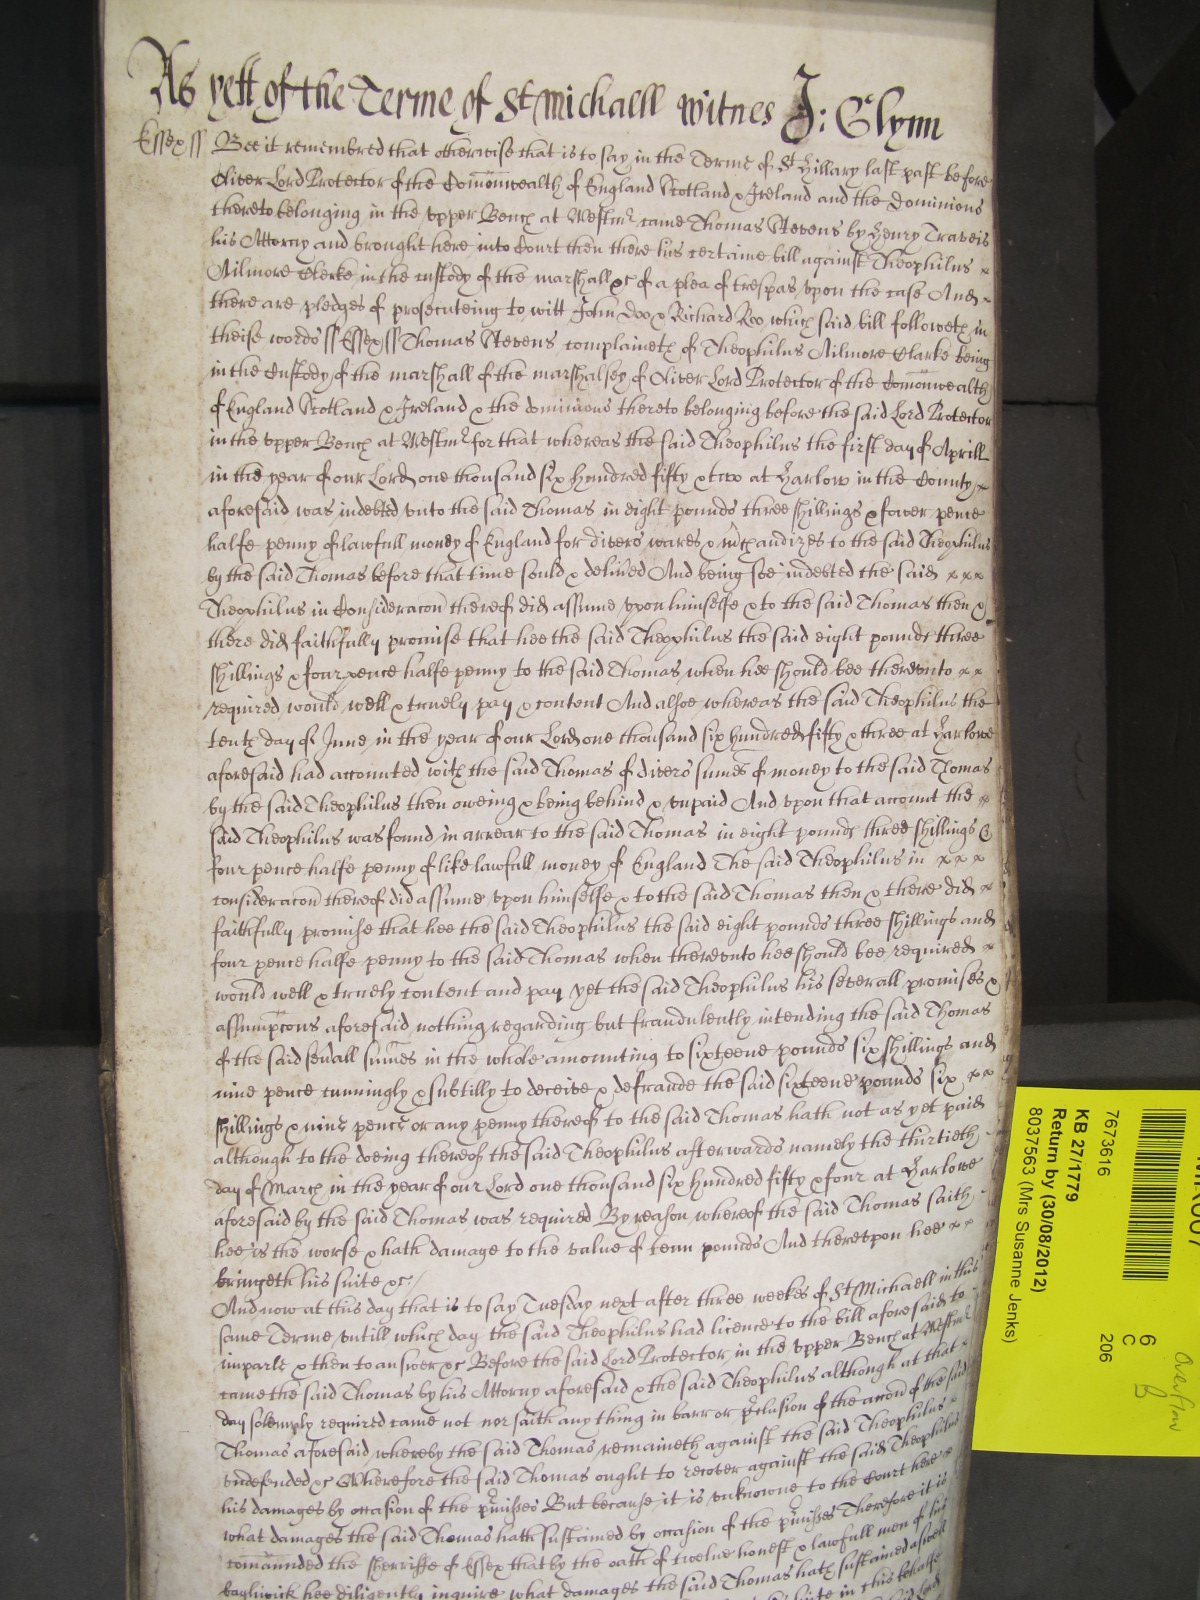 As yett of the Terme of St Michaell Witnes J: Glynn
Essex ss Bee it remembred that otherwise that is to say in the Terme of St Hillary last past before
Oliver Lord Protector of the Comonwealth of England Scotland & Ireland and the Dominions
thereto belonging in the upper Bench at Westmr came Thomas Stevens by Henry Traveis
his Attorny and brought here into Court then there his certaine bill against Theophilus
Ailmore Clerke in the custody of the marshall &c of a plea of trespas upon the case And
there are pledges of prosecuteing to witt John Doo & Richard Roo which said bill followeth in
theise words ss Essex ss Thomas Stevens complaineth of Theophilus Ailmore Clarke being
in the Custody of the marshall of the marshalsey of Oliver Lord Protector of the Comonwealth
of England Scotland & Ireland & the dominions thereto belonging before the said Lord Protector
in the upper Bench at Westmr for that whereas the said Theophilus the first day of Aprill
in the year of our Lord one thousand six hundred fifty & two at Harlow in the County
aforesaid was indebted unto the said Thomas in eight pounds three shillings & fower pence
halfe penny of lawfull money of England for divers wares & mchandizes to the said Theophilus
by the said Thomas before that time sould & delived And being soe indebted the said x x x
Theophilus in Consideracon thereof did assume upon himselfe & to the said Thomas then &
there did faithfully promise that hee the said Theophilus the said eight pounds three
shillings & four pence halfe penny to the said Thomas when hee should bee thereunto x x
required would well & truely pay & content And alsoe whereas the said Theophilus the
tenth day of June in the year of our Lord one thousand six hundred fifty & three at Harlowe
aforesaid had accounted with the said Thomas of divers sumes of money to the said Thomas
by the said Theophilus then oweing & being behind & unpaid And upon that account the x
said Theophilus was found in arrear to the said Thomas in eight pounds three shillings &
four pence halfe penny of like lawfull money of England The said Theophilus in x x x
consideracon thereof did assume upon himselfe & to the said Thomas then & there did x
faithfully promise that hee the said Theophilus the said eight pounds three shillings and
four pence halfe penny to the said Thomas when thereunto hee should bee required x
would well & truely content and pay yet the said Theophilus his severall promises &
assumpcons aforesaid nothing regarding but fraudulently intending the said Thomas
of the said sevall sumes in the whole amounting to sixteene pounds six shillings and
nine pence cunningly & subtilly to deceive & defraude the said sixteene pounds six x x
shillings & nine pence or any penny thereof to the said Thomas hath not as yet paid
although to the doeing thereof the said Theophilus afterwards namely the thirtieth
day of March in the year of our Lord one thousand six hundred fifty & four at Harlowe
aforesaid by the said Thomas was required By reason whereof the said Thomas saith
hee is the worse & hath damage to the value of tenn pounds And thereupon hee x x
bringeth his suite &c/
And now at this day that is to say Tuesday next after three weekes of St Michaell in this
same Terme untill which day the said Theophilus had licence to the bill aforesaid to
imparle & then to answer &c Before the said Lord Protector in the upper Bench at Westmr
came the said Thomas by his Attorny aforesaid & the said Theophilus although at that
day solemply required came not nor saith any thing in barr or pclusion of the accon of the said
Thomas aforesaid whereby the said Thomas remaineth against the said Theophilus
undefended &c Wherefore the said Thomas ought to recover against the said Theophilus
his damages by occasion of the pmisses But because it is unknowne to the Court here
what damages the said Thomas hath sustained by occasion of the pmisses Therefore it is
comaunded the sherriffe of Essex that by the oath of twelve honest & lawfull men of his
bayliwick hee diligently inquire what damages the said Thomas hath sustained aswell
suite in this behalfe
7673616
KB 27/1779
Return by (30/08/2012)
8037563 (Mrs Susanne Jenks)
6
C
206
overflow